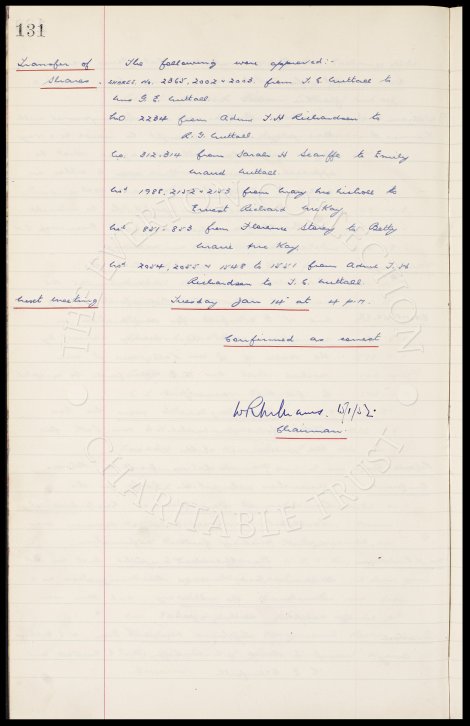 131
Transfer of Shares.
The following were approved:-
SHARES. No. 2365, 2002 & 2003 from T. C. Nuttall to
Mrs G. E. Nuttall.
No 2234 from Adms T. H Richardson to
R. G. Nuttall.
No. 312-314 from Sarah H Scarffe to Emily
Maud Nuttall.
Nos 1988, 2152 & 2153 from Mary McNicholl to
Ernest Richard McKay
Nos 851-853 from Florence Storey to Betty
Marie McKay.
Nos 2054, 2055 & 1548 to 1551 from Adms T. H
Richardson to T. C. Nuttall.
Next meeting
Tuesday Jan 14 at 4 P.M.
Confirmed as correct
Chairman.
THE EVERTON COLLECTION
CHARITABLE TRUST